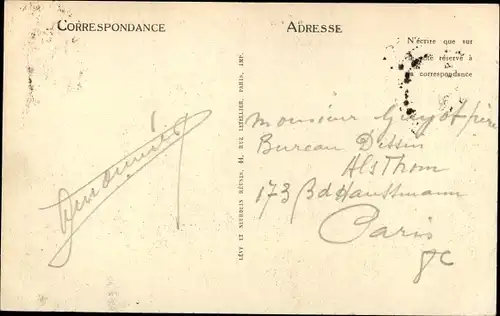 CORRESPONDANCE
ADRESSE
N'écrire que sur
le côté réservé à
la correspondance
LÉVY ET NEURDEIN RÉUNIS, 44, RUE LETELLIER, PARIS, IMP.
Monsieur Guyot Pierre
Bureau Dessin
AlsThom
173 Bd Haussmann
Paris